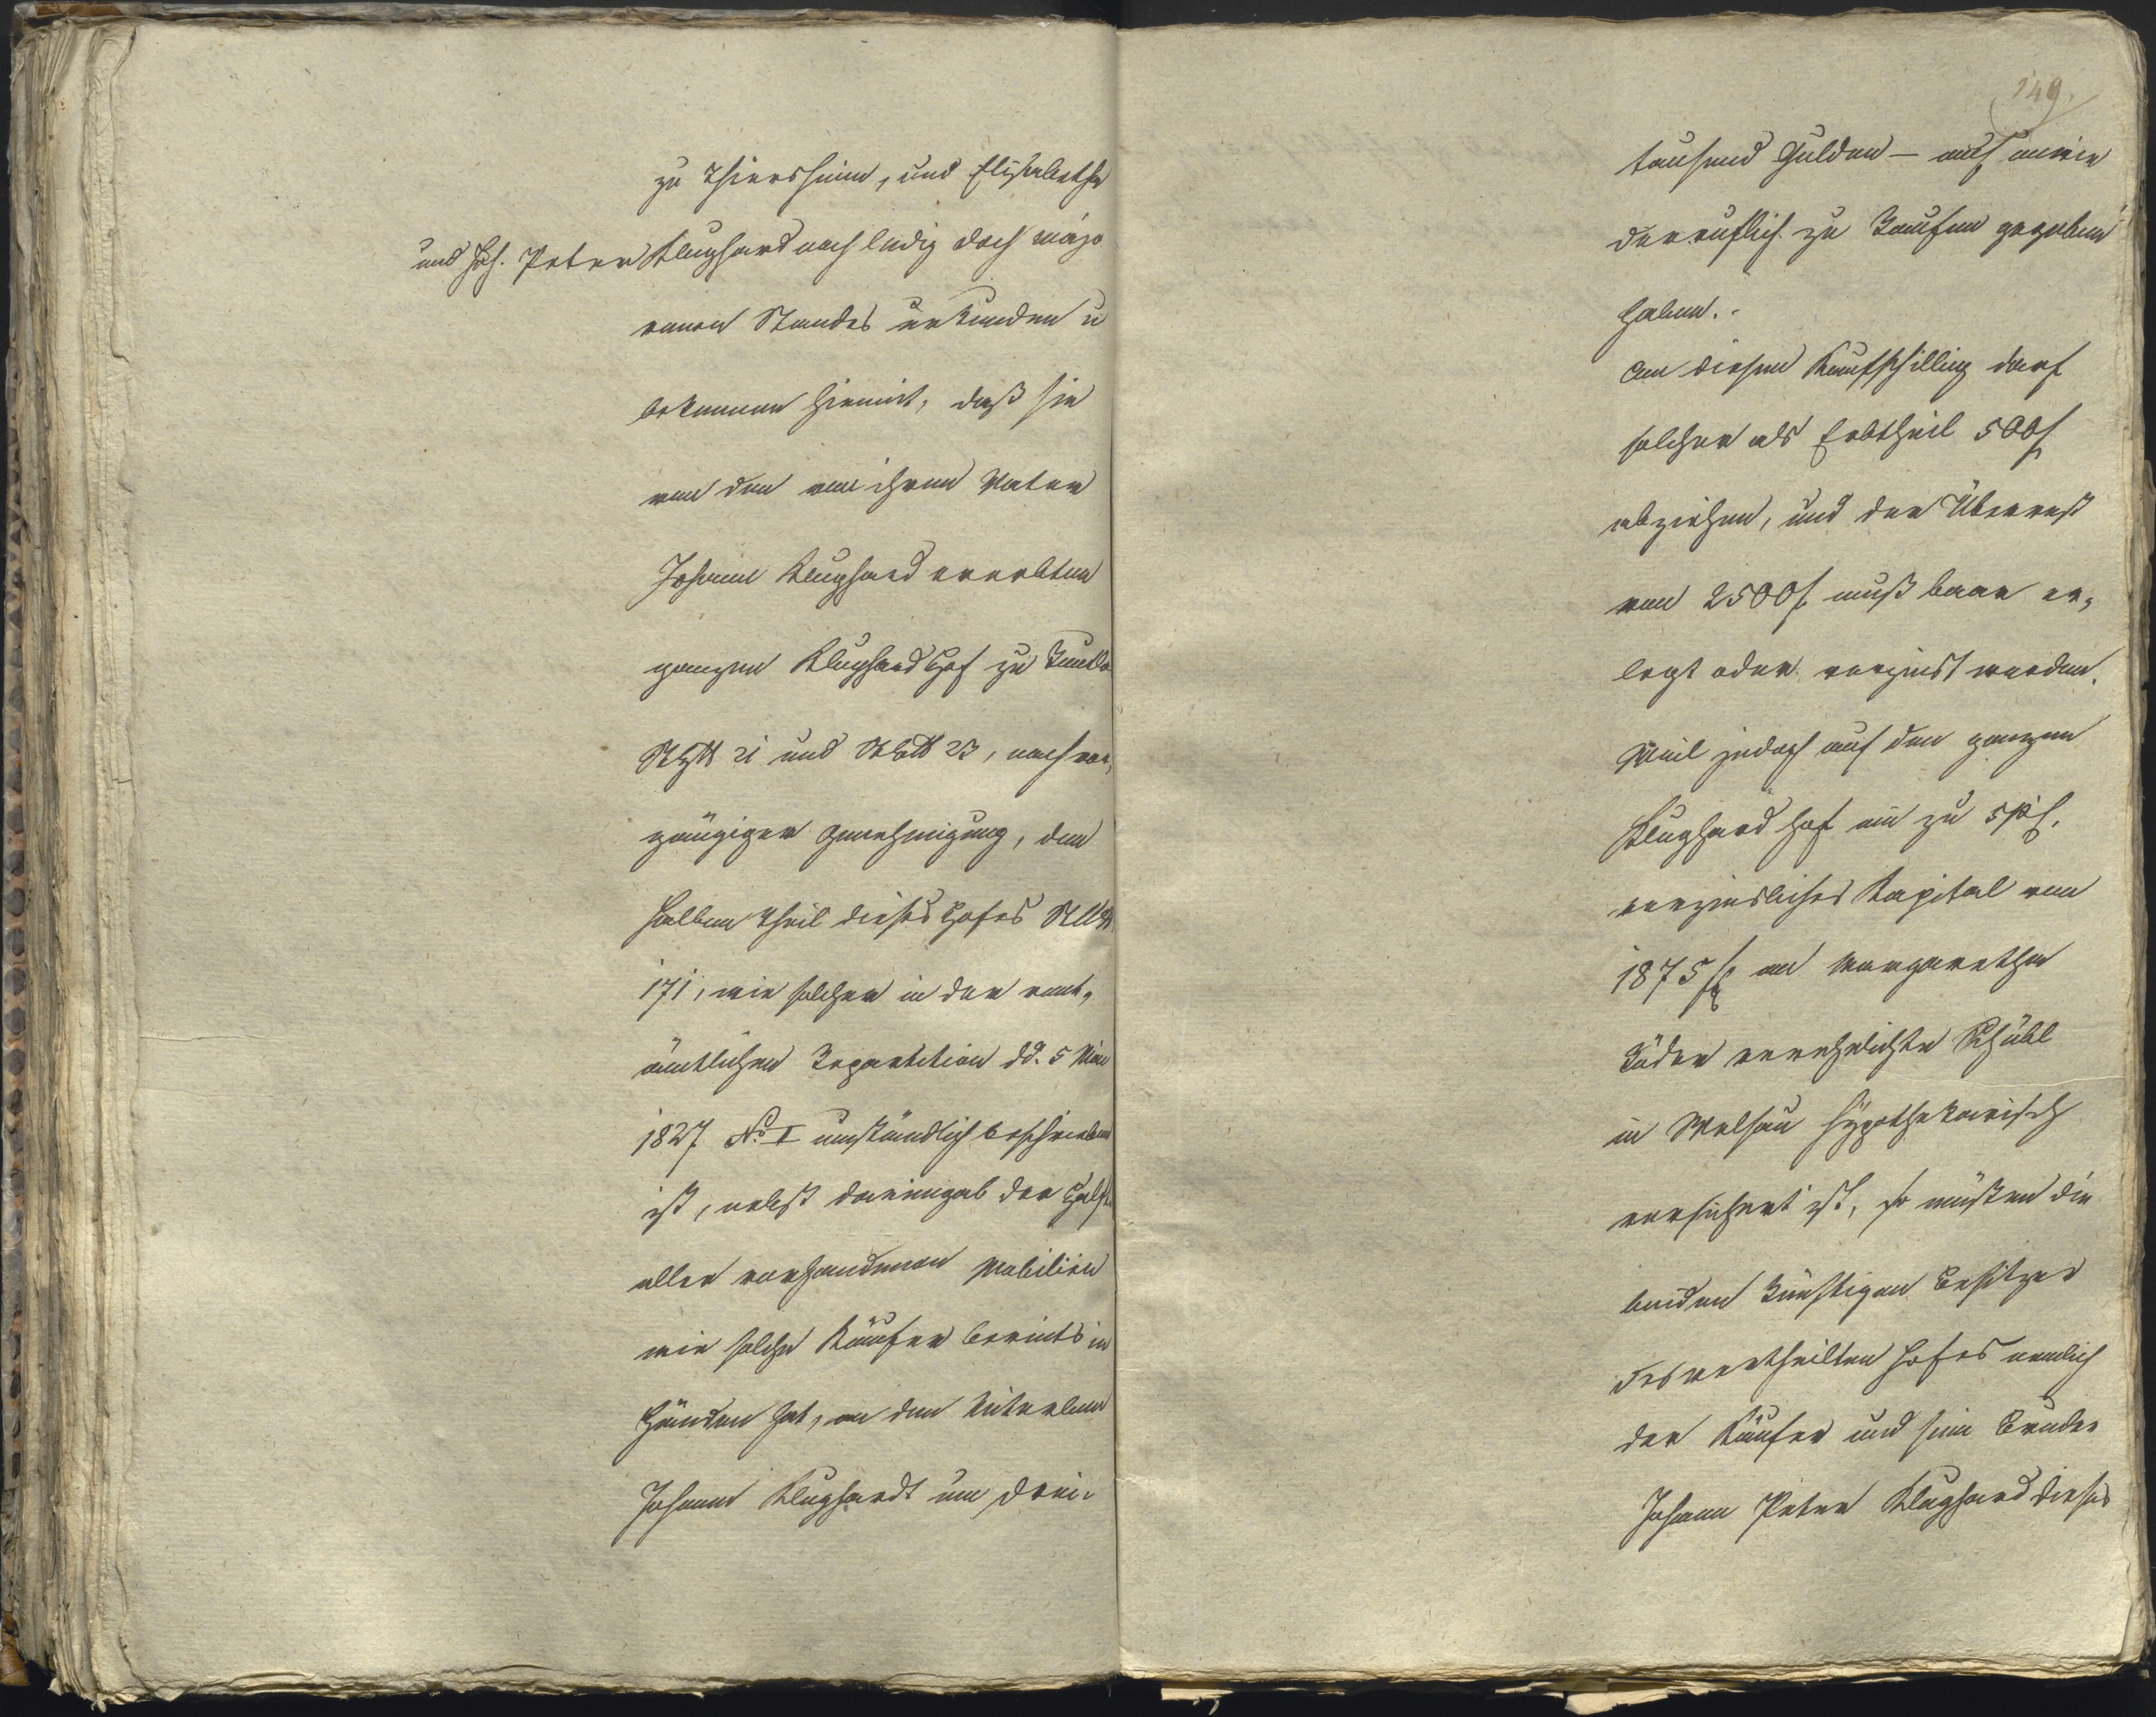 zu Thiersheim, und Elisabetha
und Joh. Peter Klughard noch ledig doch majo
rennen Standes urkunden u
bekennen hiemit, daß sie
von den von ihrem Vater
Johann Klughard ererbten
ganzen Klughard Hof zu
21 und 23, nach vor,
gängiger Genehmigung, den
halben Theil dieses Hofes
171, wie solcher in der rent,
ämtlichen Repartition dd. 5 Mai
1827 No. I umständlich beschrieben
ist, nebst dareingab der Hälfte
aller vorhandenen Mobilien
wie solche Käufer bereits in
Händen hat, an den Miterben
Johann Klughardt um drei-
149.
tausend Gulden – auf unwie
derruflich zu Kaufen gegeben
haben. -
An diesem Kaufschilling darf
solcher als Erbtheil 500 f
abziehen, und der Überrest
von 2500 f muß baar er,
legt oder verzinst werden.
Weil jedoch auf den ganzen
Klughard Hof ein zu 5 pC.
verzinsliches Kapital von
1875 f an Margaretha
verehelichte
in Wölsau hypothekarisch
versichert ist, so müßen die
beiden künftigen Besitzer
des vertheilten Hofes nemlich
der Käufer und sein Bruder
Johann Peter Klughard dieses